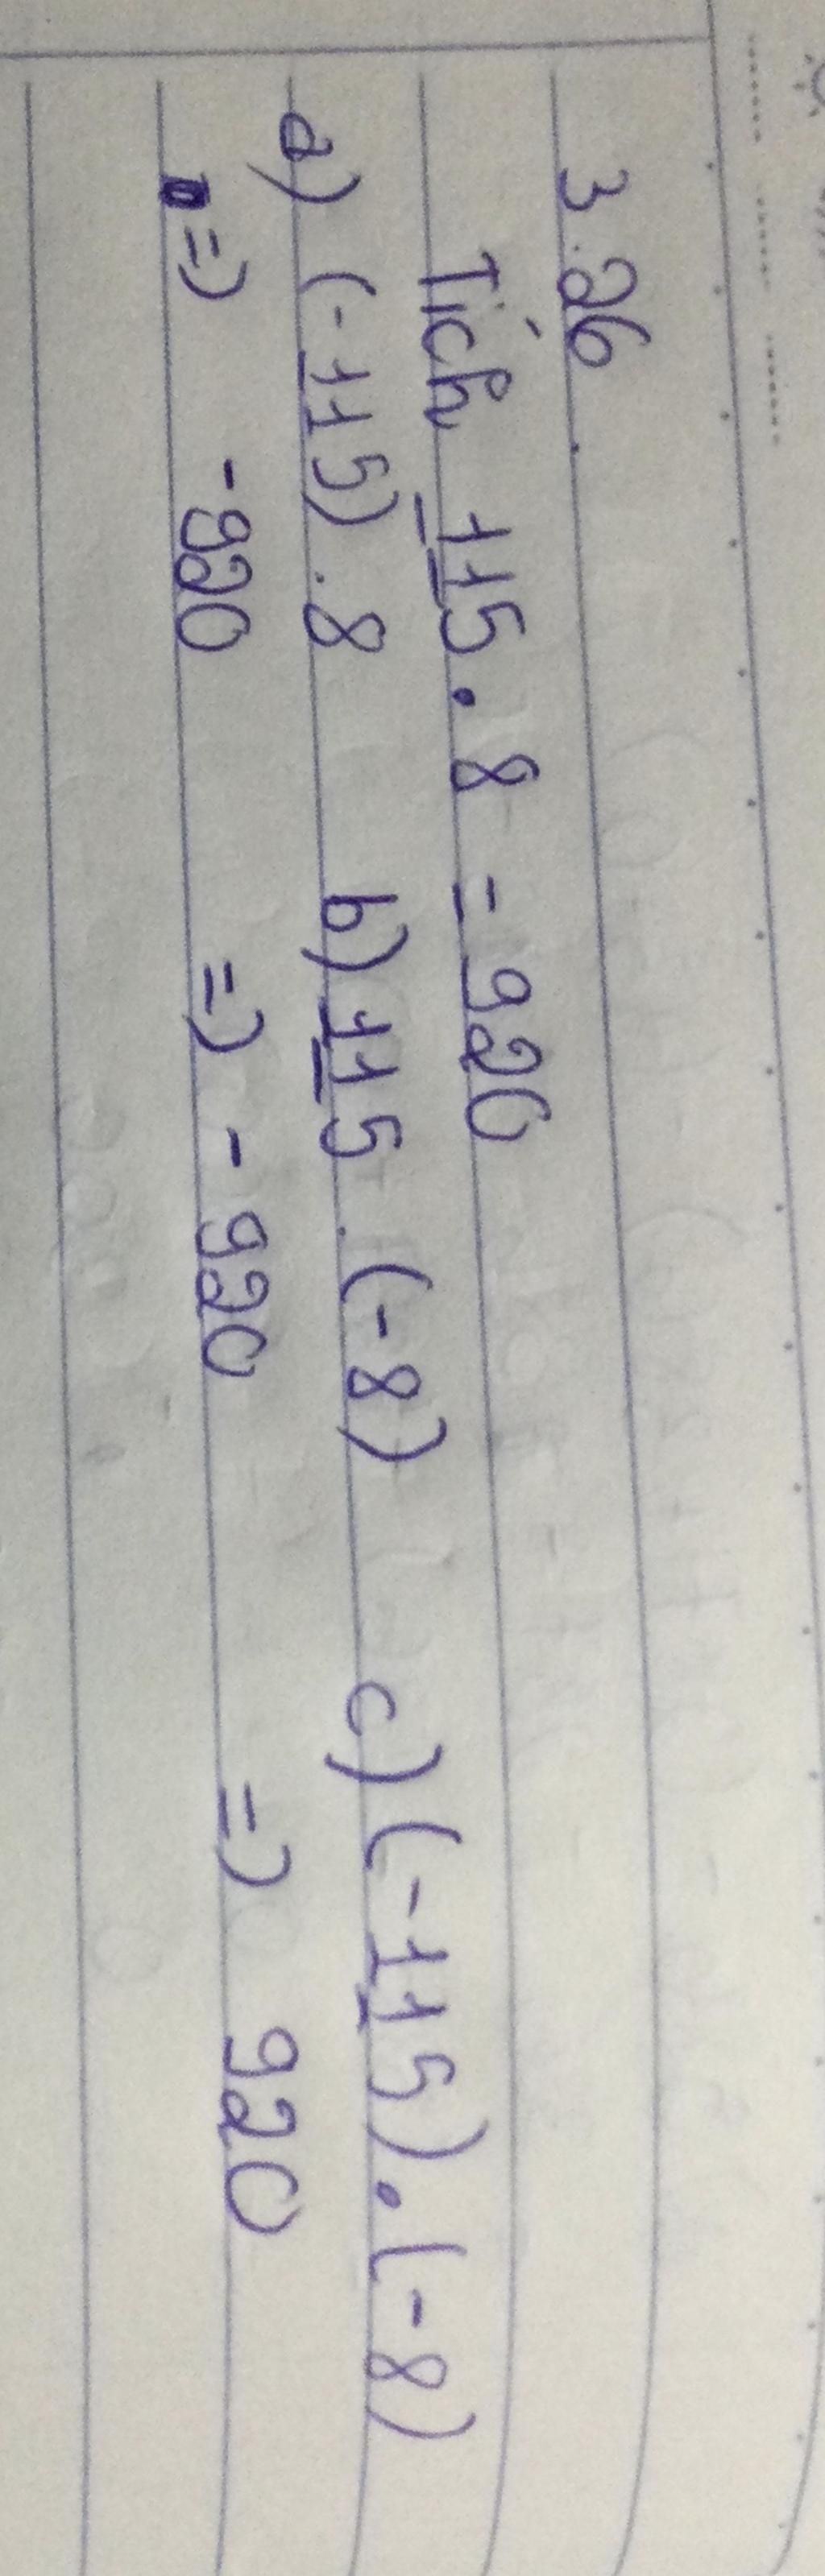 3.26
Tích 115.8 = 920
a) (-115).8 b) 115.(-8) c) (-115).(-8)
=> -920 => -920 => 920